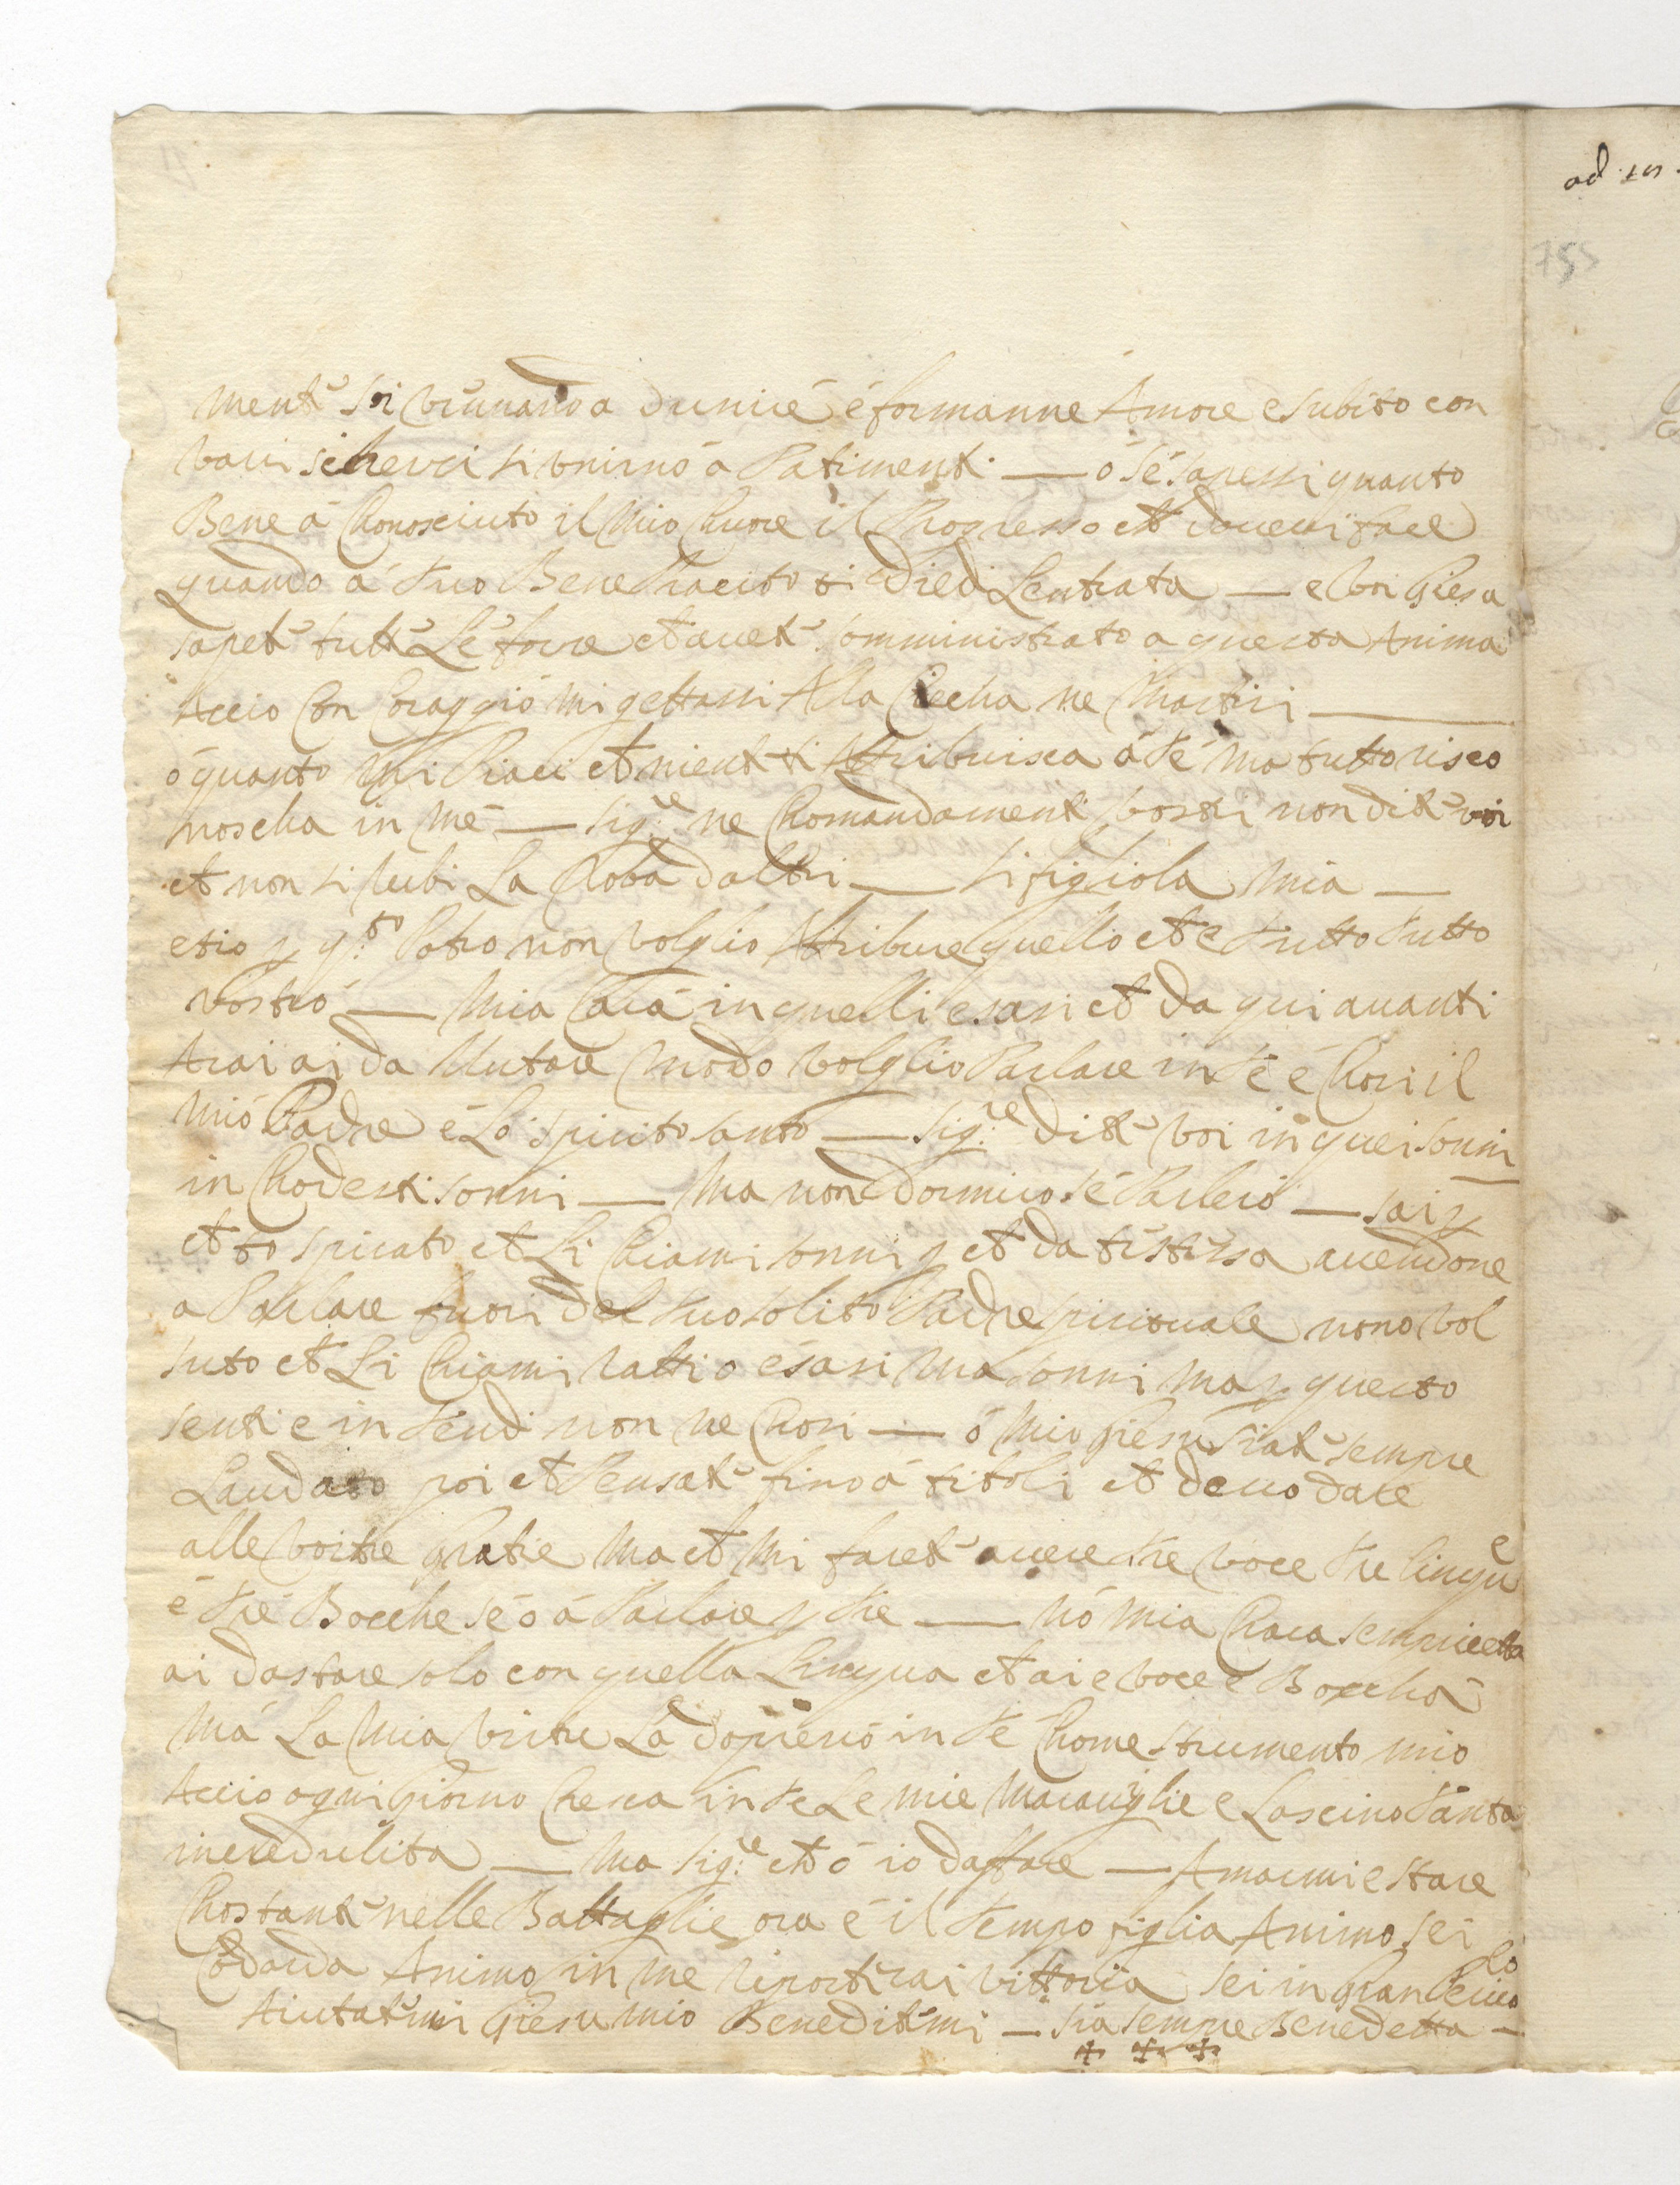 ad
755
ment si brunando a dunire é formanne Amore e subito con
varii scherci si unirno á Patimenti — ó sé sapessi quanto
Bene á Chonosciuto il Mio Chuore il Progresso ch dovevi fare
quando á Suo Beneplacito ti Diedi Lentrata — e voi Giesu
sapet tutt Lé forze ch avet somministrato a questa Anima
Accio Con Coraggió mi gettassi Alla Ciecha ne Martiri —
ó quanto Mi Piaci ch nient ti Attribuisca á té ma tutto risco
noscha in Mé — Sig.re ne Chomandamenti vostri non dit voi
ch non si rubi La Roba daltri — si figliola Mia —
e tio p q.to Potro non volglio Attribure quello ch e tutto tutto
vostró — Mia Cará in quelli esasi ch da qui avanti
Arai ai da Mutare modo volglio Parlare in té é Chosi il
mió Padre é Ló Spirito santo — Sig.re dit voi in quei sonni
in Chodesti sonni — Ma non Dormiro sé Parleró — sai p
ch tó spirato ch Li Chiami sonni p ch da té stessa avendone
a Parlare fuori del tuo solito Padre spirituale nonó vol
suto ch Li Chiami ratti o ésasi Ma sonni ma p questo
senti e intendi non né Chosi — ó Mio Giesu siat sempre
Laudato poi ch Pensat fino á titoli ch devo dare
alle vostre gratie Ma ch Mi faret avere tre voce tre lingue
é tré Bocche sé ó á Parlare p tre — nó mia Chara sempricetta
ai da stare solo con quella Lingua ch ai e voce e Boccha
Má La Mia virtu La dopreró in té Chome strumento mio
Accio ogni giorno Cresca in te Le mie Maraviglie e Lascino tanta
incredulita — Ma Sig.re ch ó io da ffare — Amarmi e stare
Chostant nelle Battaglie ora é il tempo figlia Animo sei
Codarda Animo in me riporterai vittoria sei in gran Periculo
Aiutatemi Giesu mio Beneditemi — sia sempre Benedetta —
✢ ✢ ✢